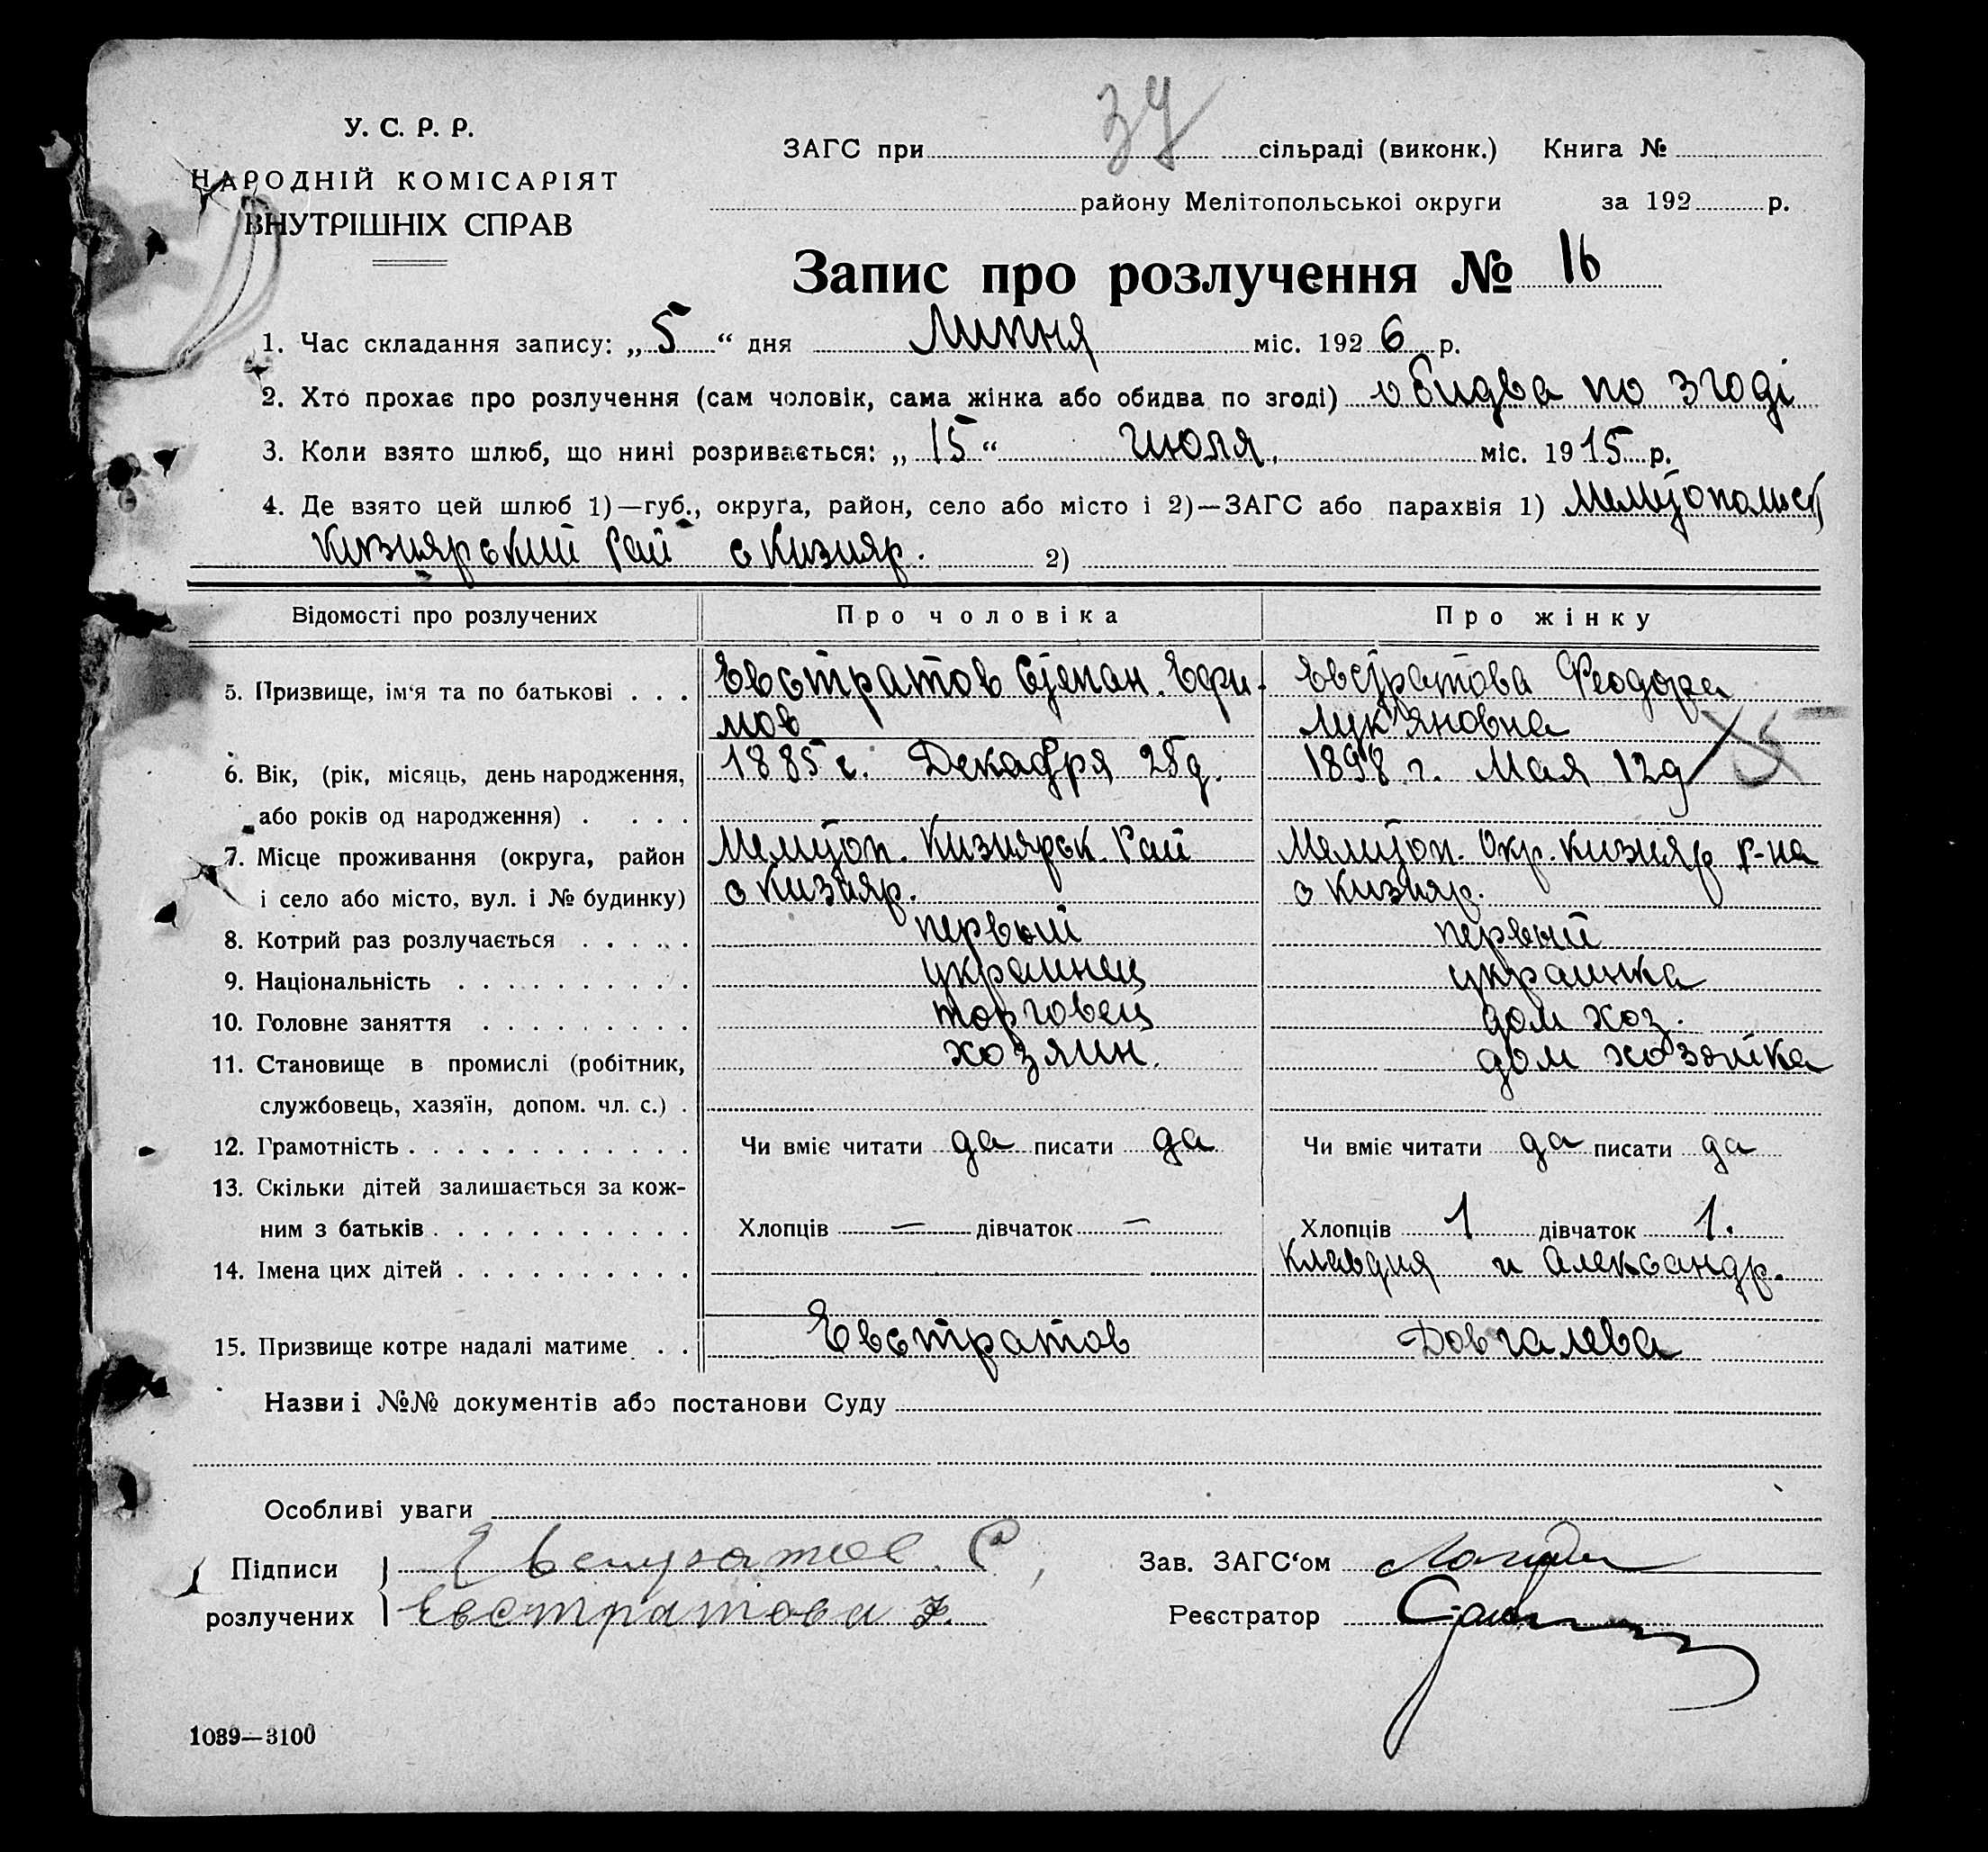 37
У. С. Р. Р.
НАРОДНІЙ КОМІСАРІЯТ
ВНУТРІШНІХ СПРАВ
ЗАГС при сільраді (виконк.) Книга №
району Мелітопольської округи за 192 р.
Запис про розлучення № 16
1. Час складання запису: „5“ дня Липня міс. 1926 р.
2. Хто прохає про розлучення (сам чоловік, сама жінка або обидва по згоді) обидва по згоді
3. Коли взято шлюб, що нині розривається: „15“ июля, міс. 1915 р.
4. Де взято цей шлюб 1)—губ., округа, район, село або місто і 2)—ЗАГС або парахвія 1) Мелитопольск
Кизиярский Рай с Кизияр. 2)
Відомості про розлучених Про чоловіка Про жінку
5. Призвище, ім‘я та по батькові . . . Евстратов Степан. Ефи- Евстратова Феодора
мов Лук'яновна
6. Вік, (рік, місяць, день народження, 1885 г. Декабря 25д. 1898 г. Мая 12д
або років од народження) . . . .
7. Місце проживання (округа, район Мелитоп. Кизиярск. Рай Мелитоп. Окр. Кизияр р-на
і село або місто, вул. і № будинку) с Кизияр. с Кизияр.
8. Котрий раз розлучається . . . . . первый первый
9. Національність . . . . . . . . . . украинец украинка
10. Головне заняття . . . . . . . . . торговец дом хоз.
11. Становище в промислі (робітник, хозяин. дом хозяйка
службовець, хазяїн, допом. чл. с.) .
12. Грамотність . . . . . . . . . . . . Чи вміє читати да писати да Чи вміє читати да писати да
13. Скільки дітей залишається за кож-
ним з батьків . . . . . . . . . . . Хлопців — дівчаток — Хлопців 1 дівчаток 1.
14. Імена цих дітей . . . . . . . . . . Клавдия и Александр.
15. Призвище котре надалі матиме . . Евстратов Довгалева
Назви і №№ документів або постанови Суду
Особливі уваги
Підписи Евстратов С Зав. ЗАГС‘ом
розлучених Евстратова Реєстратор
1039—3100